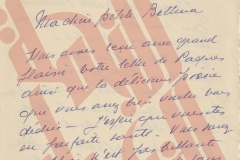 Ma chère petite Bettina
Nous avons reçu avec grand
plaisir votre lettre de Pâques
ainsi que la délicieuse poésie
que vous avez bien voulu
dédier – J'espère que vous êtes
en parfaite santé. Vous savez
n'est pas brillante